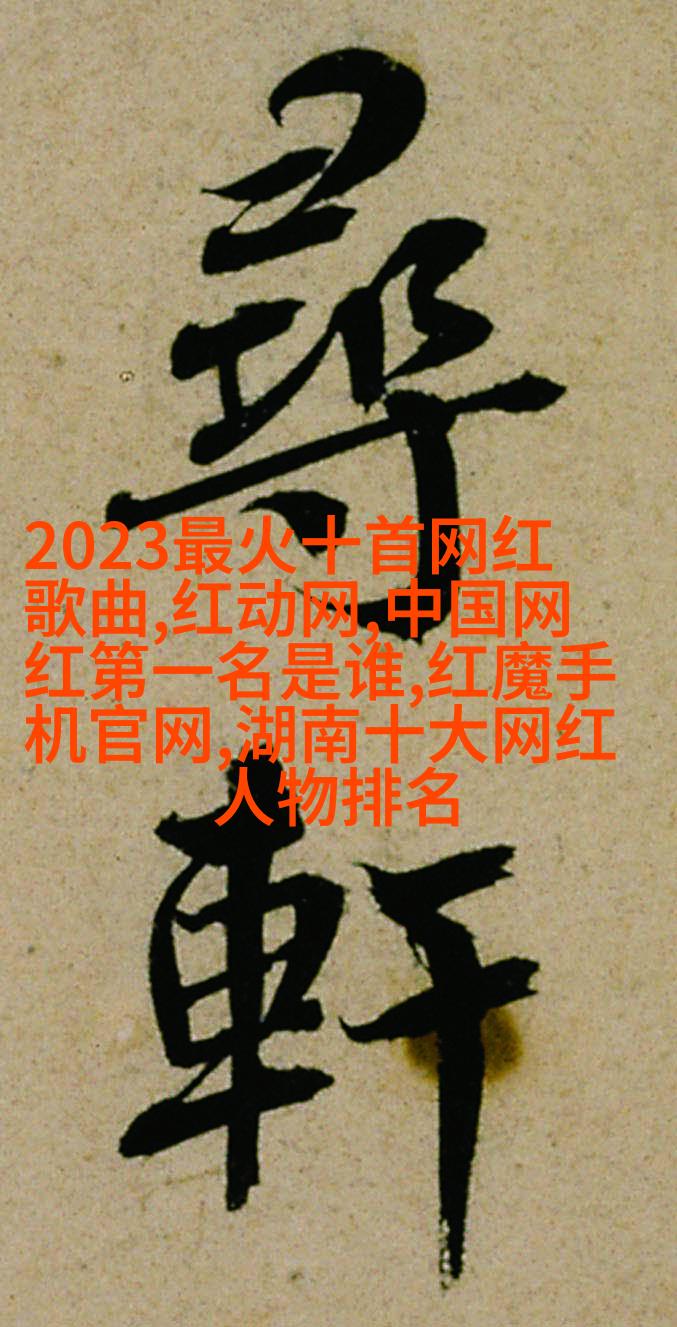 尋
2023最火十首网红
歌曲,红动网,中国网
红第一名是谁,红魔手
机官网,湖南十大网红
人物排名
軒